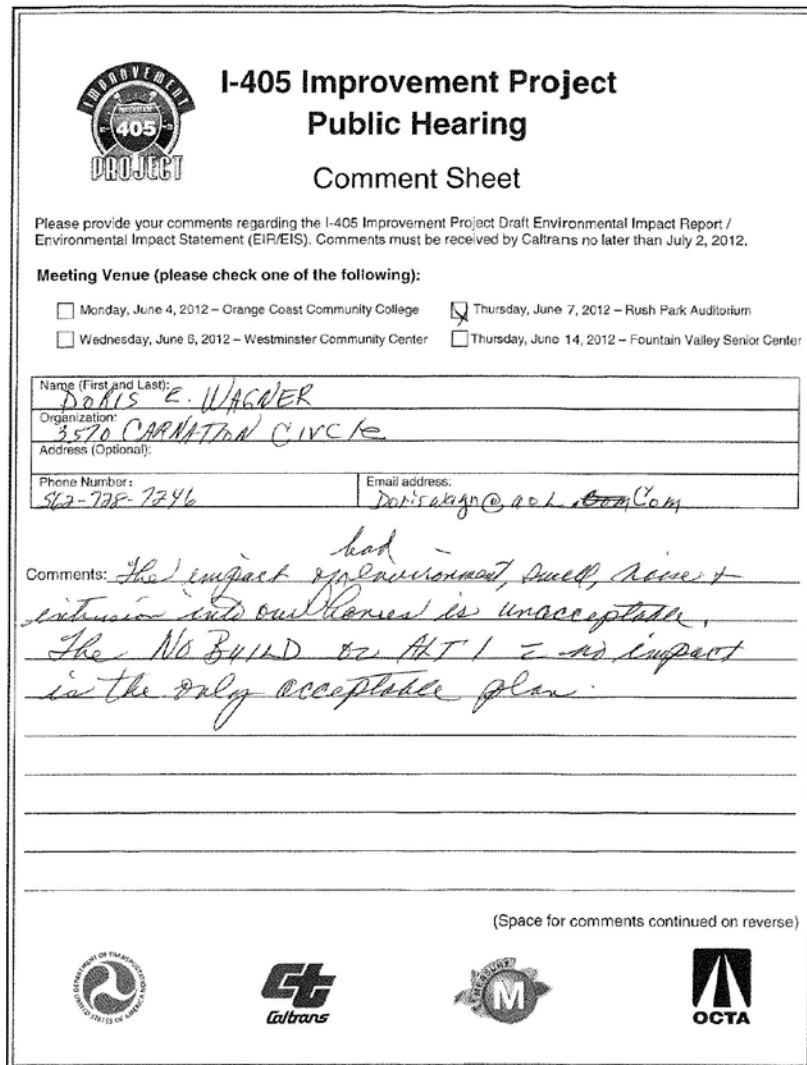 IMPROVEMENT
INTERSTATE
405
PROJECT
I-405 Improvement Project
Public Hearing
Comment Sheet
Please provide your comments regarding the I-405 Improvement Project Draft Environmental Impact Report /
Environmental Impact Statement (EIR/EIS). Comments must be received by Caltrans no later than July 2, 2012.
Meeting Venue (please check one of the following):
Monday, June 4, 2012 – Orange Coast Community College
Thursday, June 7, 2012 – Rush Park Auditorium
Wednesday, June 6, 2012 – Westminster Community Center
Thursday, June 14, 2012 – Fountain Valley Senior Center
Name (First and Last):
DORIS E. WAGNER
Organization:
3570 CARNATION CIRCle
Address (Optional):
Phone Number:
Email address:
562-728-7246
@aol.Com
bad
Comments: The impact environment, smell, noise +
intrusion into our homes is unacceptable.
The NO BUILD or ALT 1 = no impact
is the only acceptable plan.
(Space for comments continued on reverse)
DEPARTMENT OF TRANSPORTATION
UNITED STATES OF AMERICA
Caltrans
MEASURE
M
OCTA